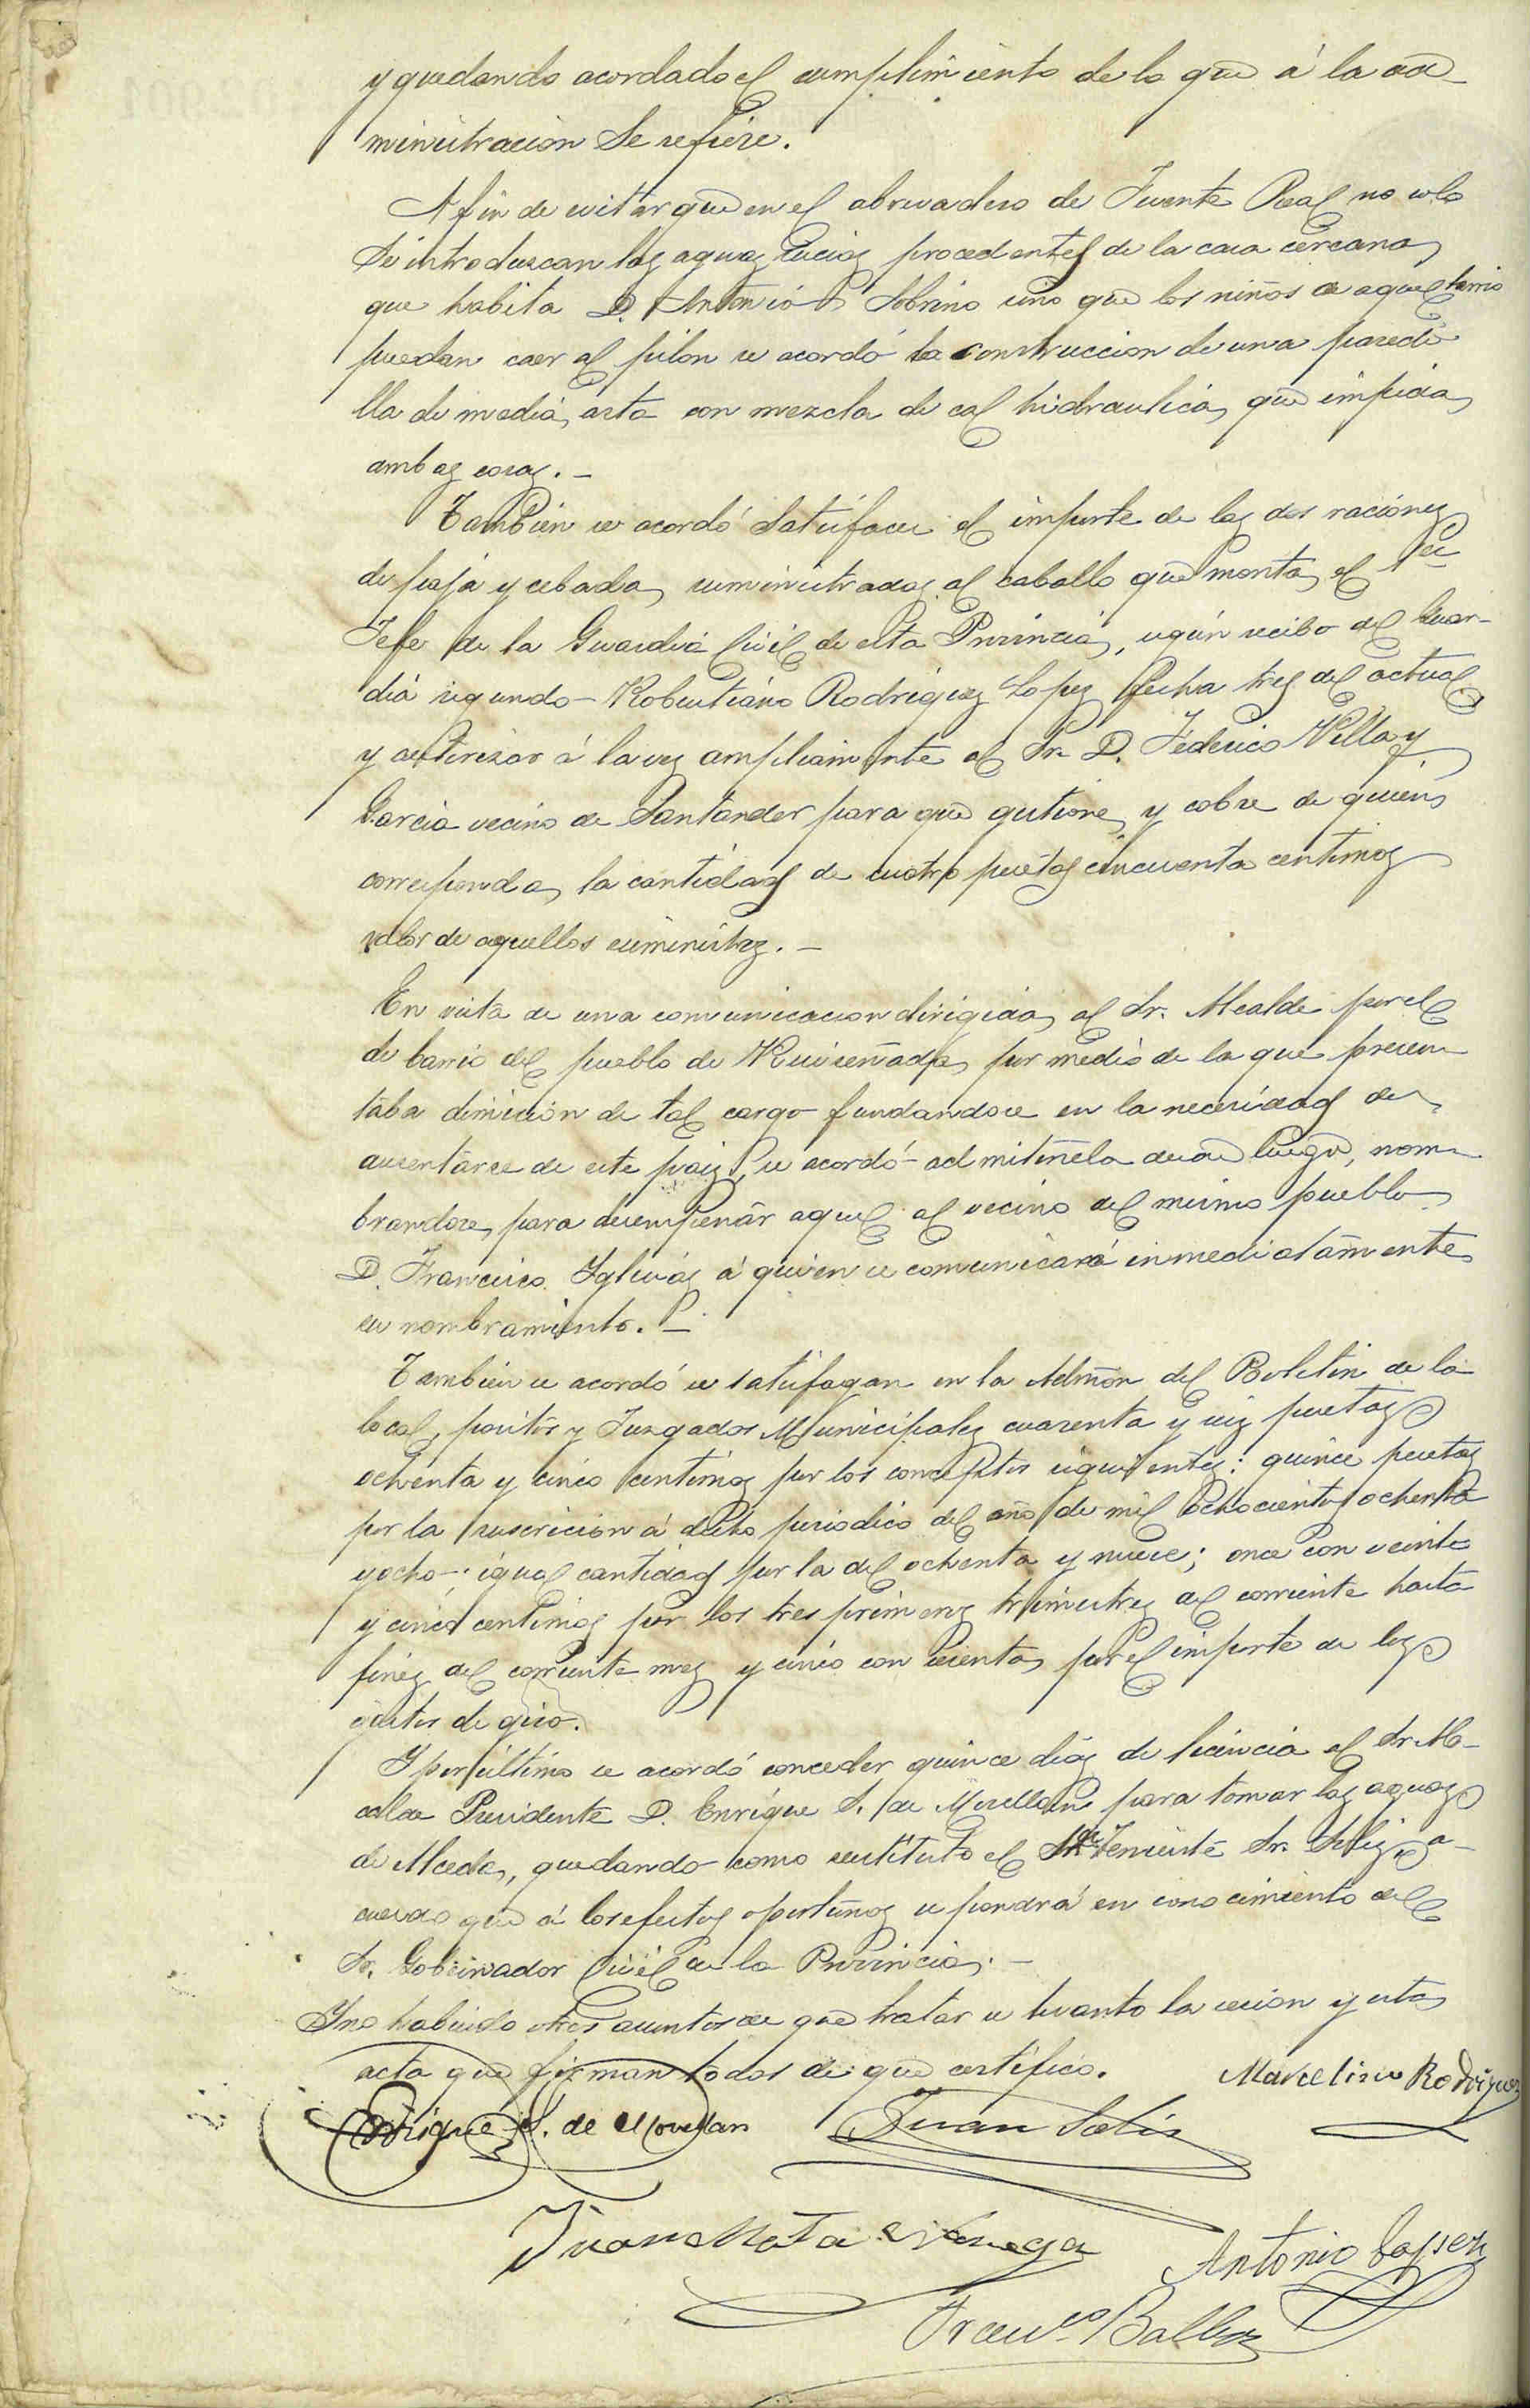 y quedando acordado el cumplimiento de lo que á la ad-
ministracion se refiere.
A fin de evitar que en el abrevadero de Fuente Real no solo
se introduzcan las aguas sucias procedentes de la casa cercana
que habita D. Antonio Sobrino sino que los niños de aquel barrio
puedan caer al pilon se acordó la construccion de una paredi-
lla de media asta con mezcla de cal hidraulica, que impida
ambas cosas. -
Tambien se acordó satisfacer el importe de las dos raciones
de paja y cebada, suministradas al caballo que monta el
Jefe de la Guardia Civil de esta Provincia, segun recibo del Guar-
dia segundo Robustiano Rodriguez Lopez fecha tres del actual,
y autorizar á la vez ampliamente al Sr. D. Federico Villa y
Garcia vecino de Santander para que gestione y cobre de quien
corresponda, la cantidad de cuatro pesetas cincuenta centimos
valor de aquellos suministros. -
En vista de una comunicacion dirigida al Sr. Alcalde por el
de barrio del pueblo de Ruiseñada, por medio de la que presen-
taba dimision de tal cargo fundandose en la necesidad de
ausentarse de este pais, se acordó admitirsela desde luego, nom-
brandose, para desempeñar aquel al vecino del mismo pueblo
D. Francisco Iglesias á quien se comunicará inmediatamente
su nombramiento. -
Tambien se acordó se satisfagan en la Admon del Boletin de la
local, positos y Juzgados Municipales cuarenta y seis pesetas
ochenta y cinco centimos por los conceptos siguientes: quince pesetas
por la suscricion á dicho periodico del año de mil ochocientos ochenta
y ocho; igual cantidad por la del ochenta y nueve; once con veinte
y cinco centimos por los tres primeros trimestres del corriente hasta
fines del corriente mes y cinco con sesenta, por el importe de los
gastos de giro.
Y por último se acordó conceder quince dias de licencia al Sr. Al-
calde Presidente D. Enrique S. de Movellan para tomar las aguas
de Alceda, quedando como sustituto el Teniente Sr. Solis, a-
cuerdo que á los efectos oportunos se pondrá en conocimiento del
Sr. Gobernador Civil de la Provincia. -
Y no habiendo otros asuntos de que tratar se levantó la sesion y esta
acta que firman todos de que certifico.
Marcelino Rodriguez
Enrique S. de Movellan Juan Solis
Juan Mata Venega
Antonio
Franco